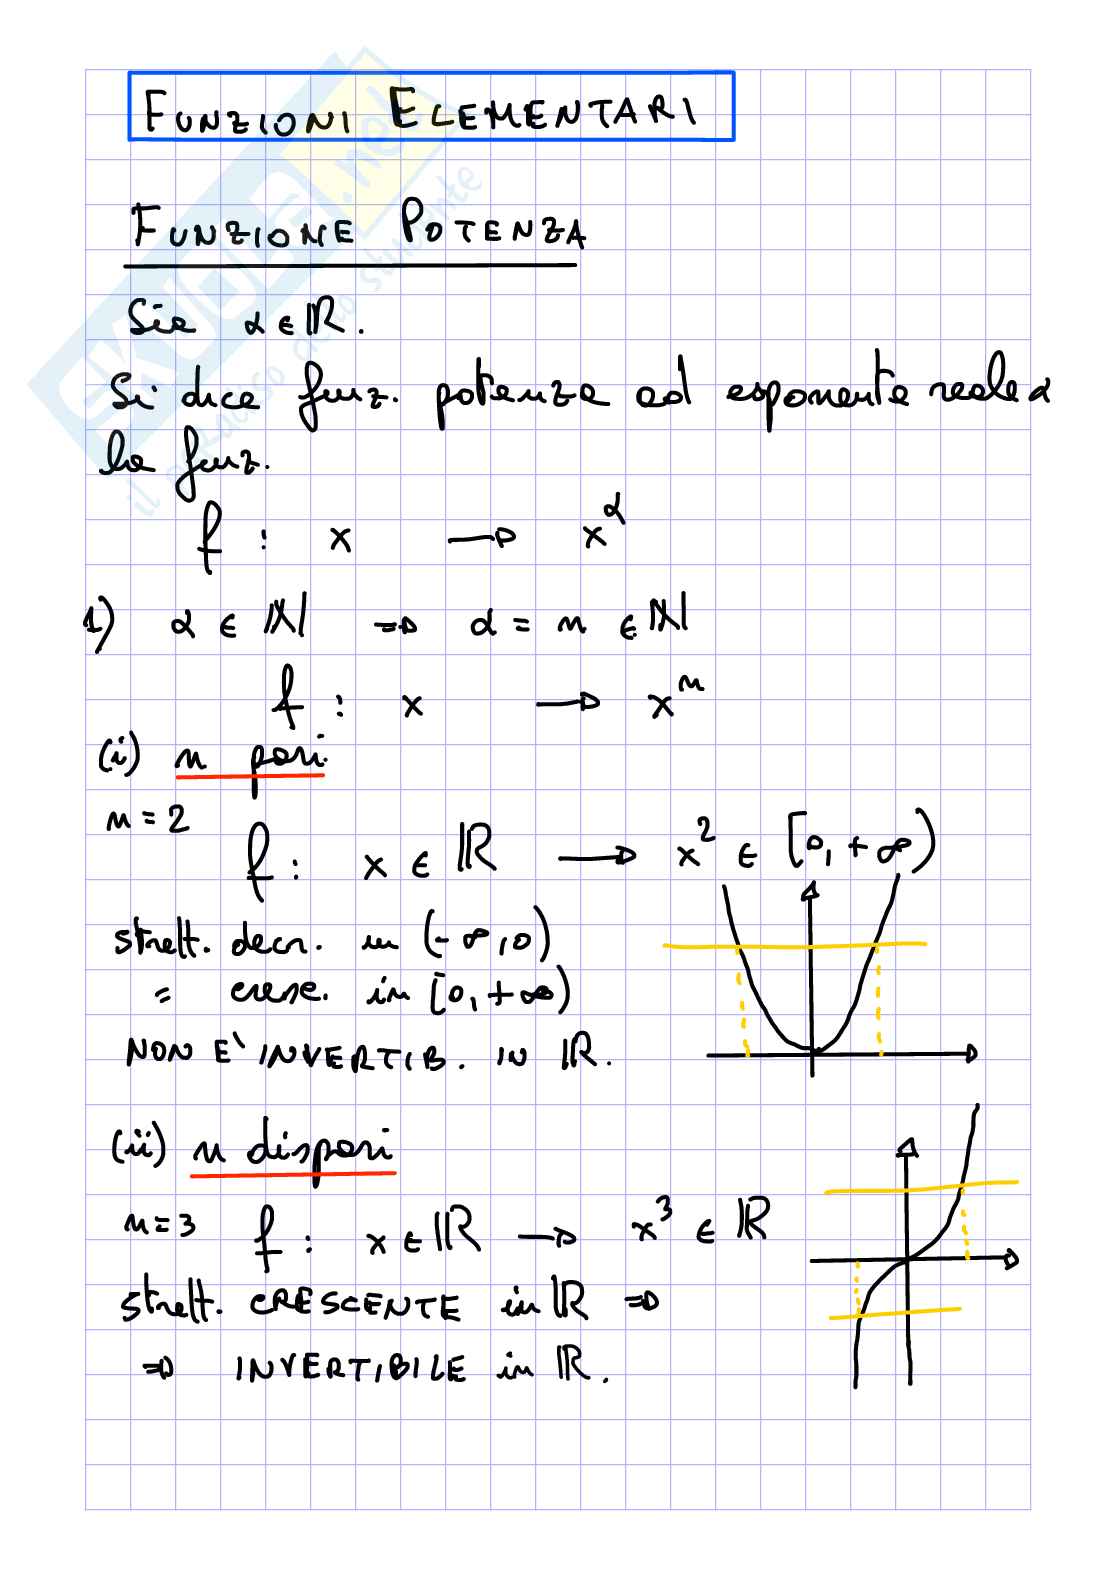 FUNZIONI ELEMENTARI
FUNZIONE POTENZA
Sia α ∈ ℝ.
Si dice funz. potenza ad esponente reale α
la funz.
f : x → x^α
1) α ∈ ℕ ⇒ α = n ∈ ℕ
f : x → x^n
(i) n pari.
n = 2
f : x ∈ ℝ → x² ∈ [0, +∞)
strett. decr. in (-∞, 0)
= cresc. in [0, +∞)
NON E' INVERTIB. IN ℝ.
(ii) n dispari
n = 3 f : x ∈ ℝ → x³ ∈ ℝ
strett. CRESCENTE in ℝ ⇒
⇒ INVERTIBILE in ℝ.
SKUOLA.net
il paradiso dello studente